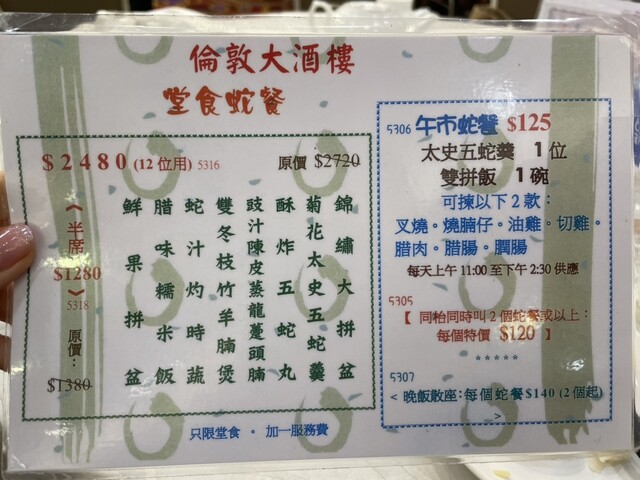 倫敦大酒樓
堂食蛇餐
$2480 (12位用) 5316 原價 $2720
錦繡大拼盆
菊花太史五蛇羹
酥炸五蛇丸
豉汁陳皮蒸龍躉頭腩
雙冬枝竹羊腩煲
蛇汁灼時蔬
腊味糯米飯
鮮果拼盆
《半席$1280》5318 原價:$1380
只限堂食 · 加一服務費
5306 午市蛇餐 $125
太史五蛇羹 1位
雙拼飯 1碗
可揀以下2款:
叉燒。燒腩仔。油雞。切雞。
腊肉。腊腸。膶腸
每天上午11:00至下午2:30供應
5305
【 同枱同時叫2個蛇餐或以上:
每個特價 $120 】
*****
5307
< 晚飯散座:每個蛇餐$140 (2個起)
>